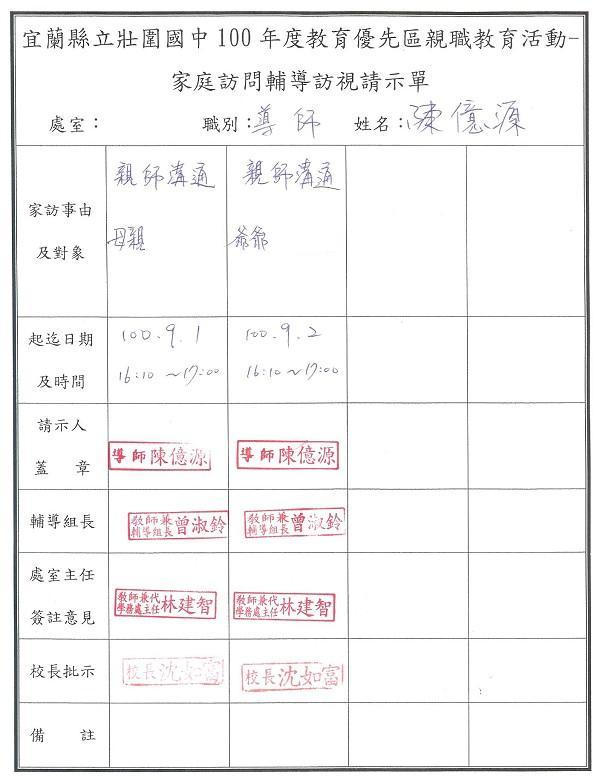 宜蘭縣立壯圍國中100年度教育優先區親職教育活動-
家庭訪問輔導訪視請示單
處室： 職別：導師 姓名：陳億源
家訪事由
及對象
親師溝通
母親
親師溝通
爺爺
起迄日期
及時間
100.9.1
16:10～17:00
100.9.2
16:10～17:00
請示人
蓋 章
導師陳億源
導師陳億源
輔導組長
教師兼
輔導組長曾淑鈴
教師兼
輔導組長曾淑鈴
處室主任
簽註意見
教師兼代
學務處主任林建智
教師兼代
學務處主任林建智
校長批示
校長沈如富
校長沈如富
備 註